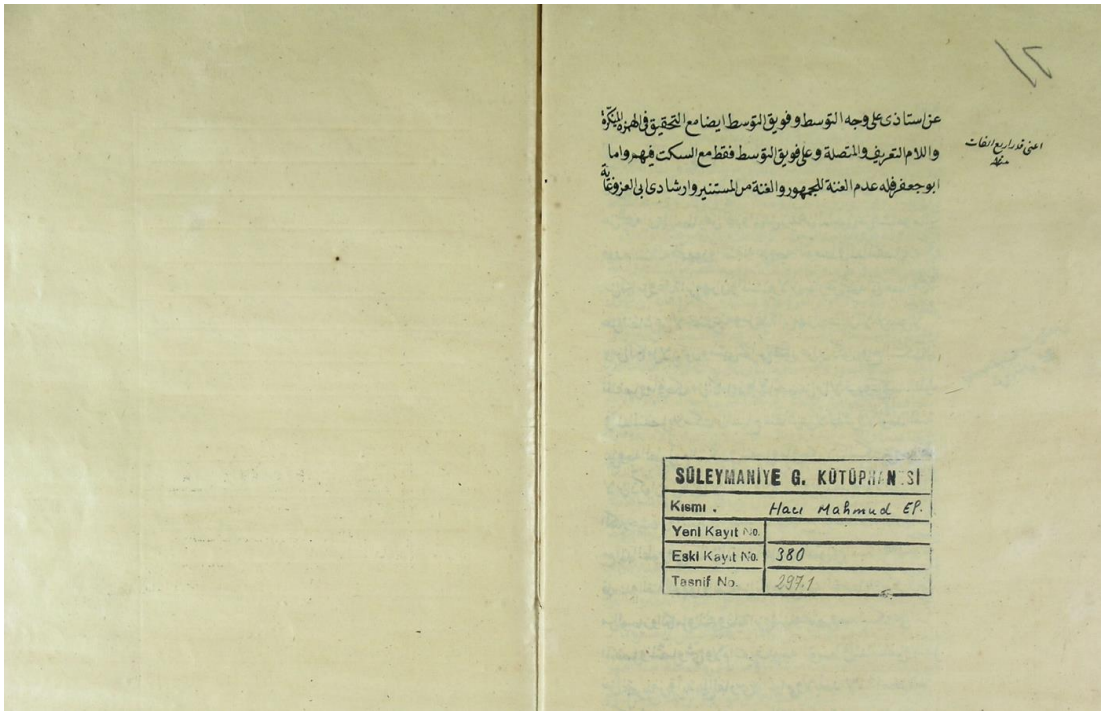 عن استاذى على وجه التوسط و فويق التوسط ايضا مع التحقيق فى الهمزة المنكرة
واللام التعريف والمتصلة وعلى فويق التوسط فقط مع السكت فيهم واما
ابو جعفر فله عدم الغنة للجمهور والغنة من المستنير وارشادى ابى العز وغاية
اعنى قدر اربع الفات
منه
SÜLEYMANİYE G. KÜTÜPHANESİ
Kısmı . Hacı Mahmud Ef.
Yeni Kayıt No.
Eski Kayıt No. 380
Tasnif No. 297.1